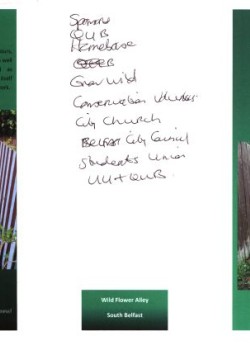 Sponsors
QUB
Homebase
Grow Wild
Conservation Volunteers
City Church
Belfast City Council
Students Union
UU + QUB
Wild Flower Alley
South Belfast